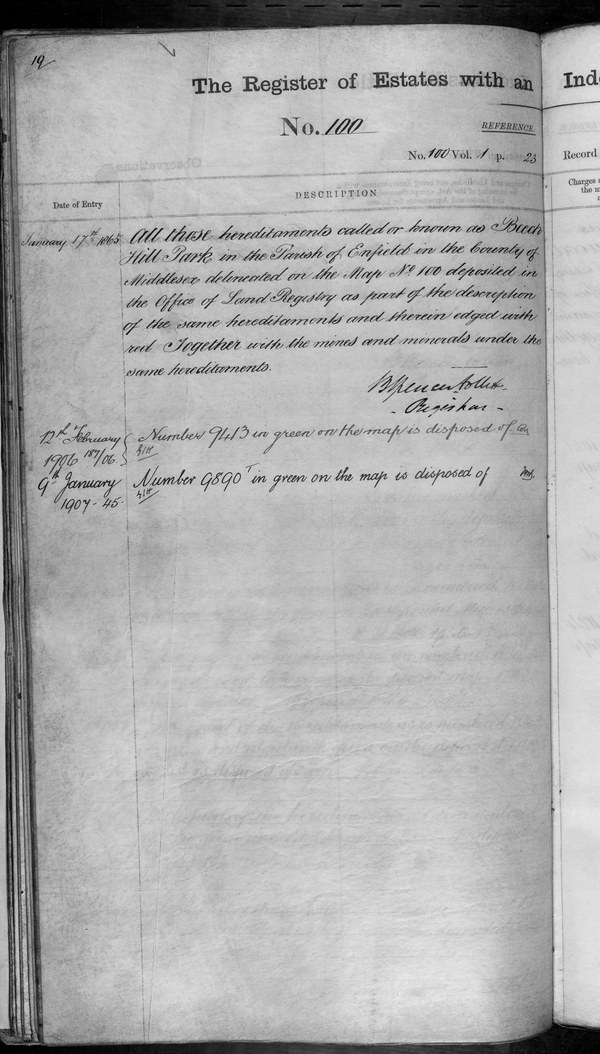 19
The Register of Estates with an Ind
No. 100
REFERENCE.
No. 100 Vol. 1 p. 23
Record
Date of Entry
DESCRIPTION
Charges
January 17th 1865
All those hereditaments called or known as Beech
Hill Park in the Parish of Enfield in the County of
Middlesex delineated on the Map No 100 deposited in
the Office of Land Registry as part of the description
of the same hereditaments and therein edged with
red Together with the mines and minerals under the
same hereditaments.
B Spencer Follett
- Registrar -
12th February Number 9413 in green on the map is disposed of
1906 187/06.
9th January Number 9890 in green on the map is disposed of
1907 - 45.